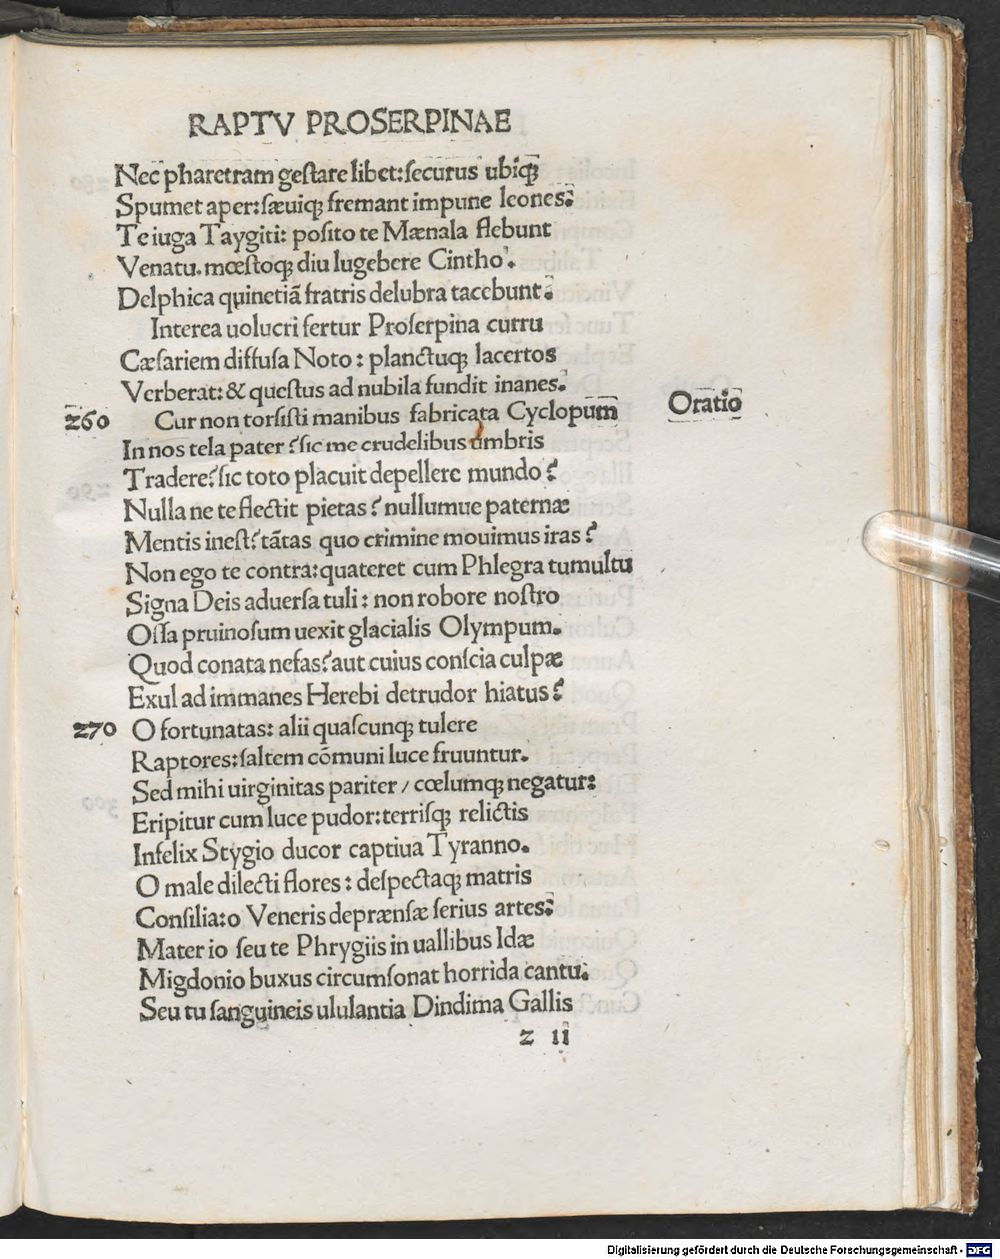 RAPTV PROSERPINAE
Nec pharetram geſtare libet: ſecurus ubiqꝫ
Spumet aper: ſæuiqꝫ fremant impune leones.
Te iuga Taygiti: poſito te Mænala flebunt
Venatu. mœſtoqꝫ diu lugebere Cintho.
Delphica quinetiã fratris delubra tacebunt.
Interea uolucri fertur Proſerpina curru
Cæſariem diffuſa Noto: planctuqꝫ lacertos
Verberat: & queſtus ad nubila fundit inanes.
260 Cur non torſiſti manibus fabricata Cyclopum Oratio
In nos tela pater? ſic me crudelibus umbris
Tradere? ſic toto placuit depellere mundo?
Nulla ne te flectit pietas? nullumue paternæ
Mentis ineſt? tãtas quo crimine mouimus iras?
Non ego te contra: quateret cum Phlegra tumultu
Signa Deis aduerſa tuli: non robore noſtro
Oſſa pruinoſum uexit glacialis Olympum.
Quod conata nefas? aut cuius conſcia culpæ
Exul ad immanes Herebi detrudor hiatus?
270 O fortunatas: alii quaſcunqꝫ tulere
Raptores: ſaltem cõmuni luce fruuntur.
Sed mihi uirginitas pariter / cœlumqꝫ negatur:
Eripitur cum luce pudor: terriſqꝫ relictis
Infelix Stygio ducor captiua Tyranno.
O male dilecti flores: deſpectaqꝫ matris
Conſilia: o Veneris deprænſæ ſerius artes:
Mater io ſeu te Phrygiis in uallibus Idæ
Migdonio buxus circumſonat horrida cantu.
Seu tu ſanguineis ululantia Dindima Gallis
z ii
Digitalisierung gefördert durch die Deutsche Forschungsgemeinschaft - DFG